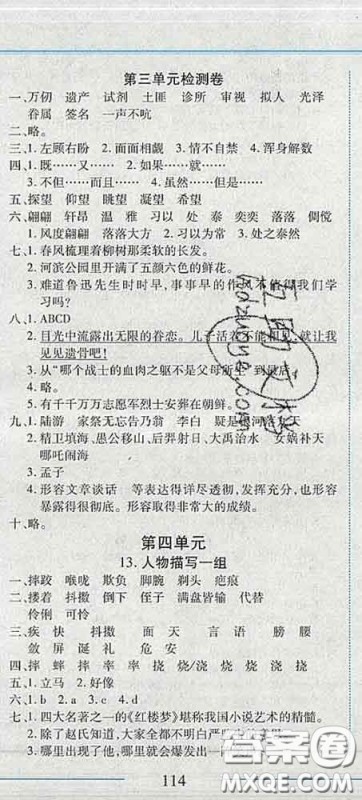 第三单元检测卷
一、万仞 遗产 试剂 土匪 诊所 审视 拟人 光泽
眷属 签名 一声不吭
二、略。
三、1.左顾右盼 2.面面相觑 3.情不自禁 4.浑身解数
四、1.既……又…… 2.如果……就……
3.不但……而且…… 4.虽然……但是……
五、探望 仰望 眺望 凝望 希望
六、翩翩 轩昂 温 雅 习以 处 泰 奕奕 落落 倜傥
1.风度翩翩 2.落落大方 3.习以为常 4.处之泰然
七、1.春风梳理着柳树那柔软的长发。
2.河滨公园里开满了五颜六色的鲜花。
3.难道鲁迅先生时时早,事事早的作风不值得我们学
习吗?
八、1.ABCD
2.目光中流露出无限的眷恋。儿子活着不能相见,就让我
见见遗骨吧!
3.从“哪个战士的血肉之躯不是父母所生”到最后。
4.略。
5.有千千万万志愿军烈士安葬在朝鲜。
九、1.陆游 家祭无忘告乃翁 李白 疑是银河落九天
2.精卫填海、愚公移山、后羿射日、大禹治水 女娲补天
哪吒闹海
3.孟子
4.形容文章谈话 等表达得详尽透彻,发挥充分,也形容
暴露得很彻底。形容突破极大、非常大的成绩。
十、略。
第四单元
13.人物描写一组
一、摔跤 喉咙 欺负 脚腕 剃头 疤痕
二、搂着 抖擞 倒下 侄子 满盘皆输 代替
伶俐 可怜
三、疾 快 抖擞 面 天 言 语 膀 腰
敛 屏 诞 礼 危 安
四、摔 蟀 摔 率 率 挠/浇 烧 浇 烧 浇 挠
五、1.立马 2.好像
六、1.b 2.a 3.c
七、1.四大名著之一的《红楼梦》堪称我国小说艺术的精髓。
2.除了赵氏知道,大家全都不明白
3.哪里出现了他,哪里就会爆发出一
114
答案圈
MXQE.COM